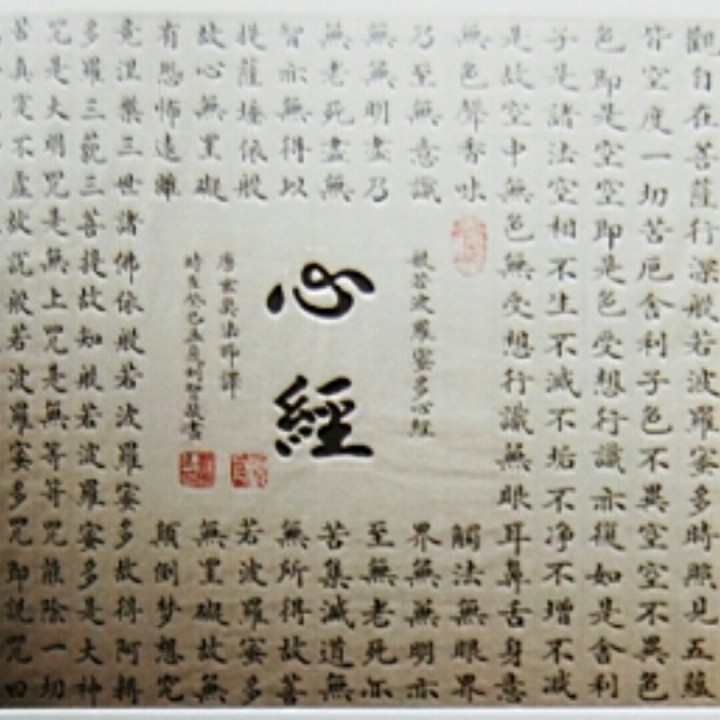 觀自在菩薩行深般若波羅蜜多時照見五蘊
皆空度一切苦厄舍利子色不異空空不異色
色即是空空即是色受想行識亦復如是舍利
子是諸法空相不生不滅不垢不净不增不减
是故空中無色無受想行識無眼耳鼻舌身意
無色聲香味
觸法無眼界
乃至無意識
界無無明亦
無無明盡乃
至無老死亦
無老死盡無
苦集滅道無
智亦無得以
無所得故菩
提薩埵依般
若波羅蜜多
故心無罣礙
無罣礙故無
有恐怖遠離
顛倒梦想究
般若波羅蜜多心經
心經
唐玄奘法師譯
竟涅槃三世諸佛依般若波羅蜜多故得阿耨
多羅三藐三菩提故知般若波羅蜜多是大神
咒是大明咒是無上咒是無等等咒能除一切
苦真实不虛故說般若波羅蜜多咒即說咒曰